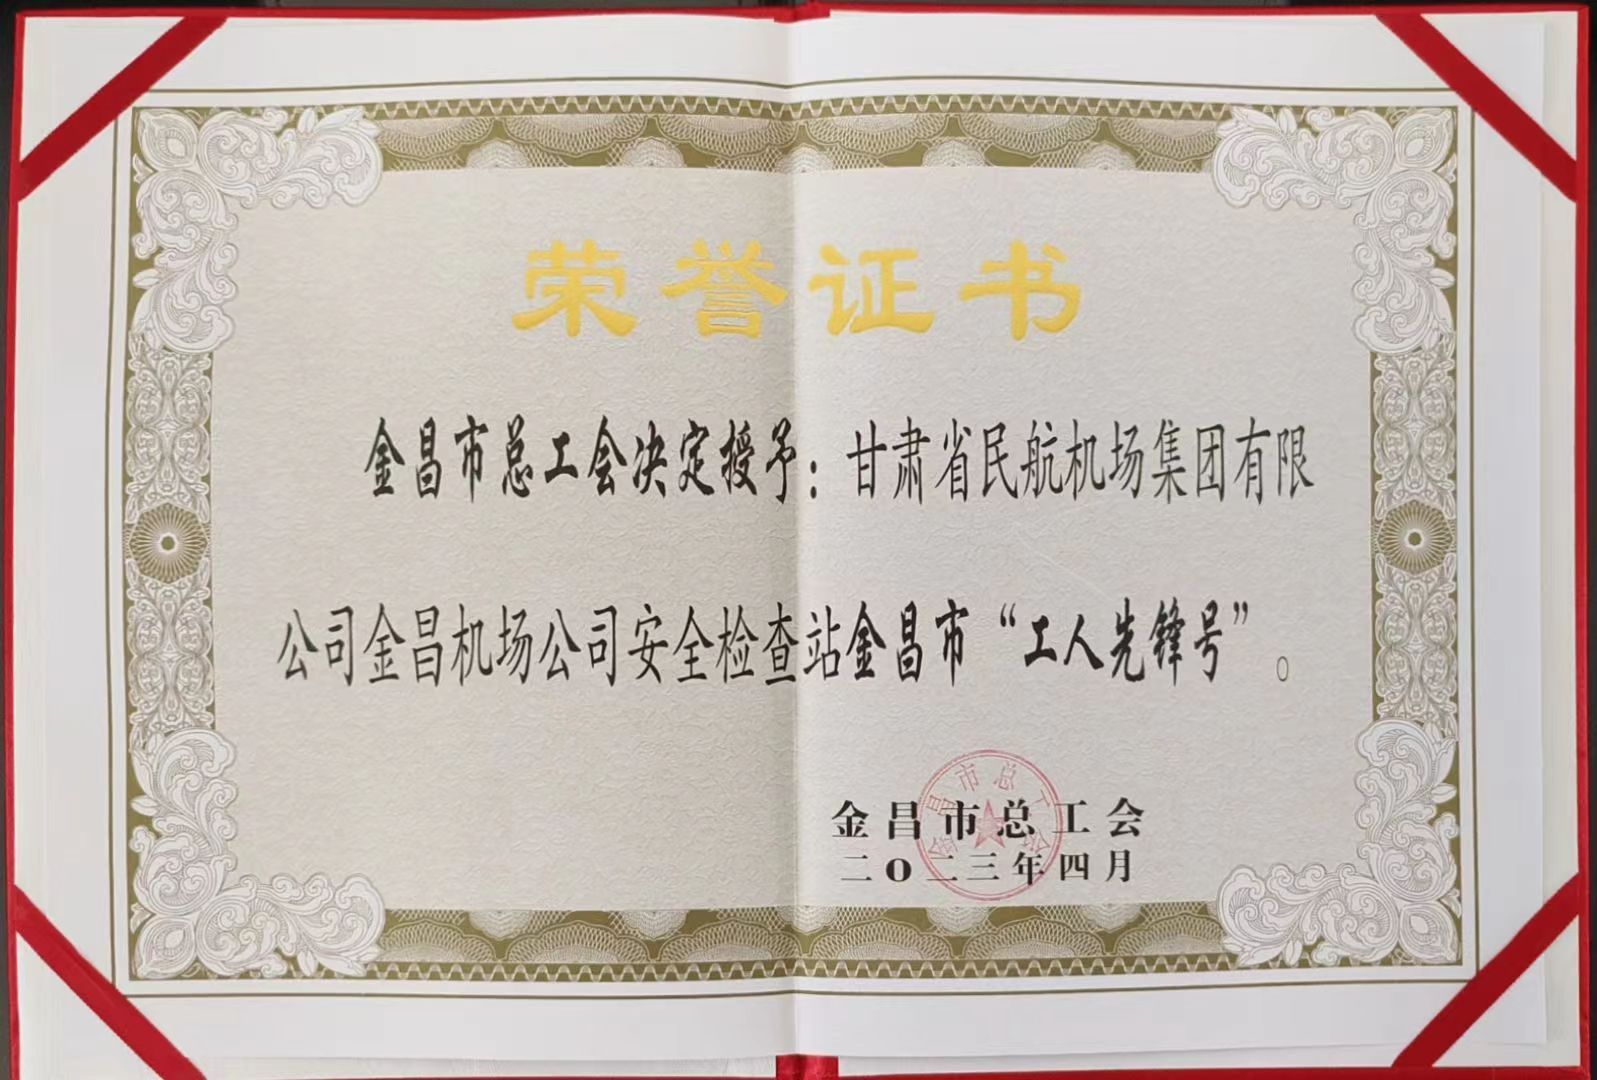 荣誉证书
金昌市总工会决定授予：甘肃省民航机场集团有限
公司金昌机场公司安全检查站金昌市“工人先锋号”。
金昌市总工会
金昌市总工会
二O二三年四月